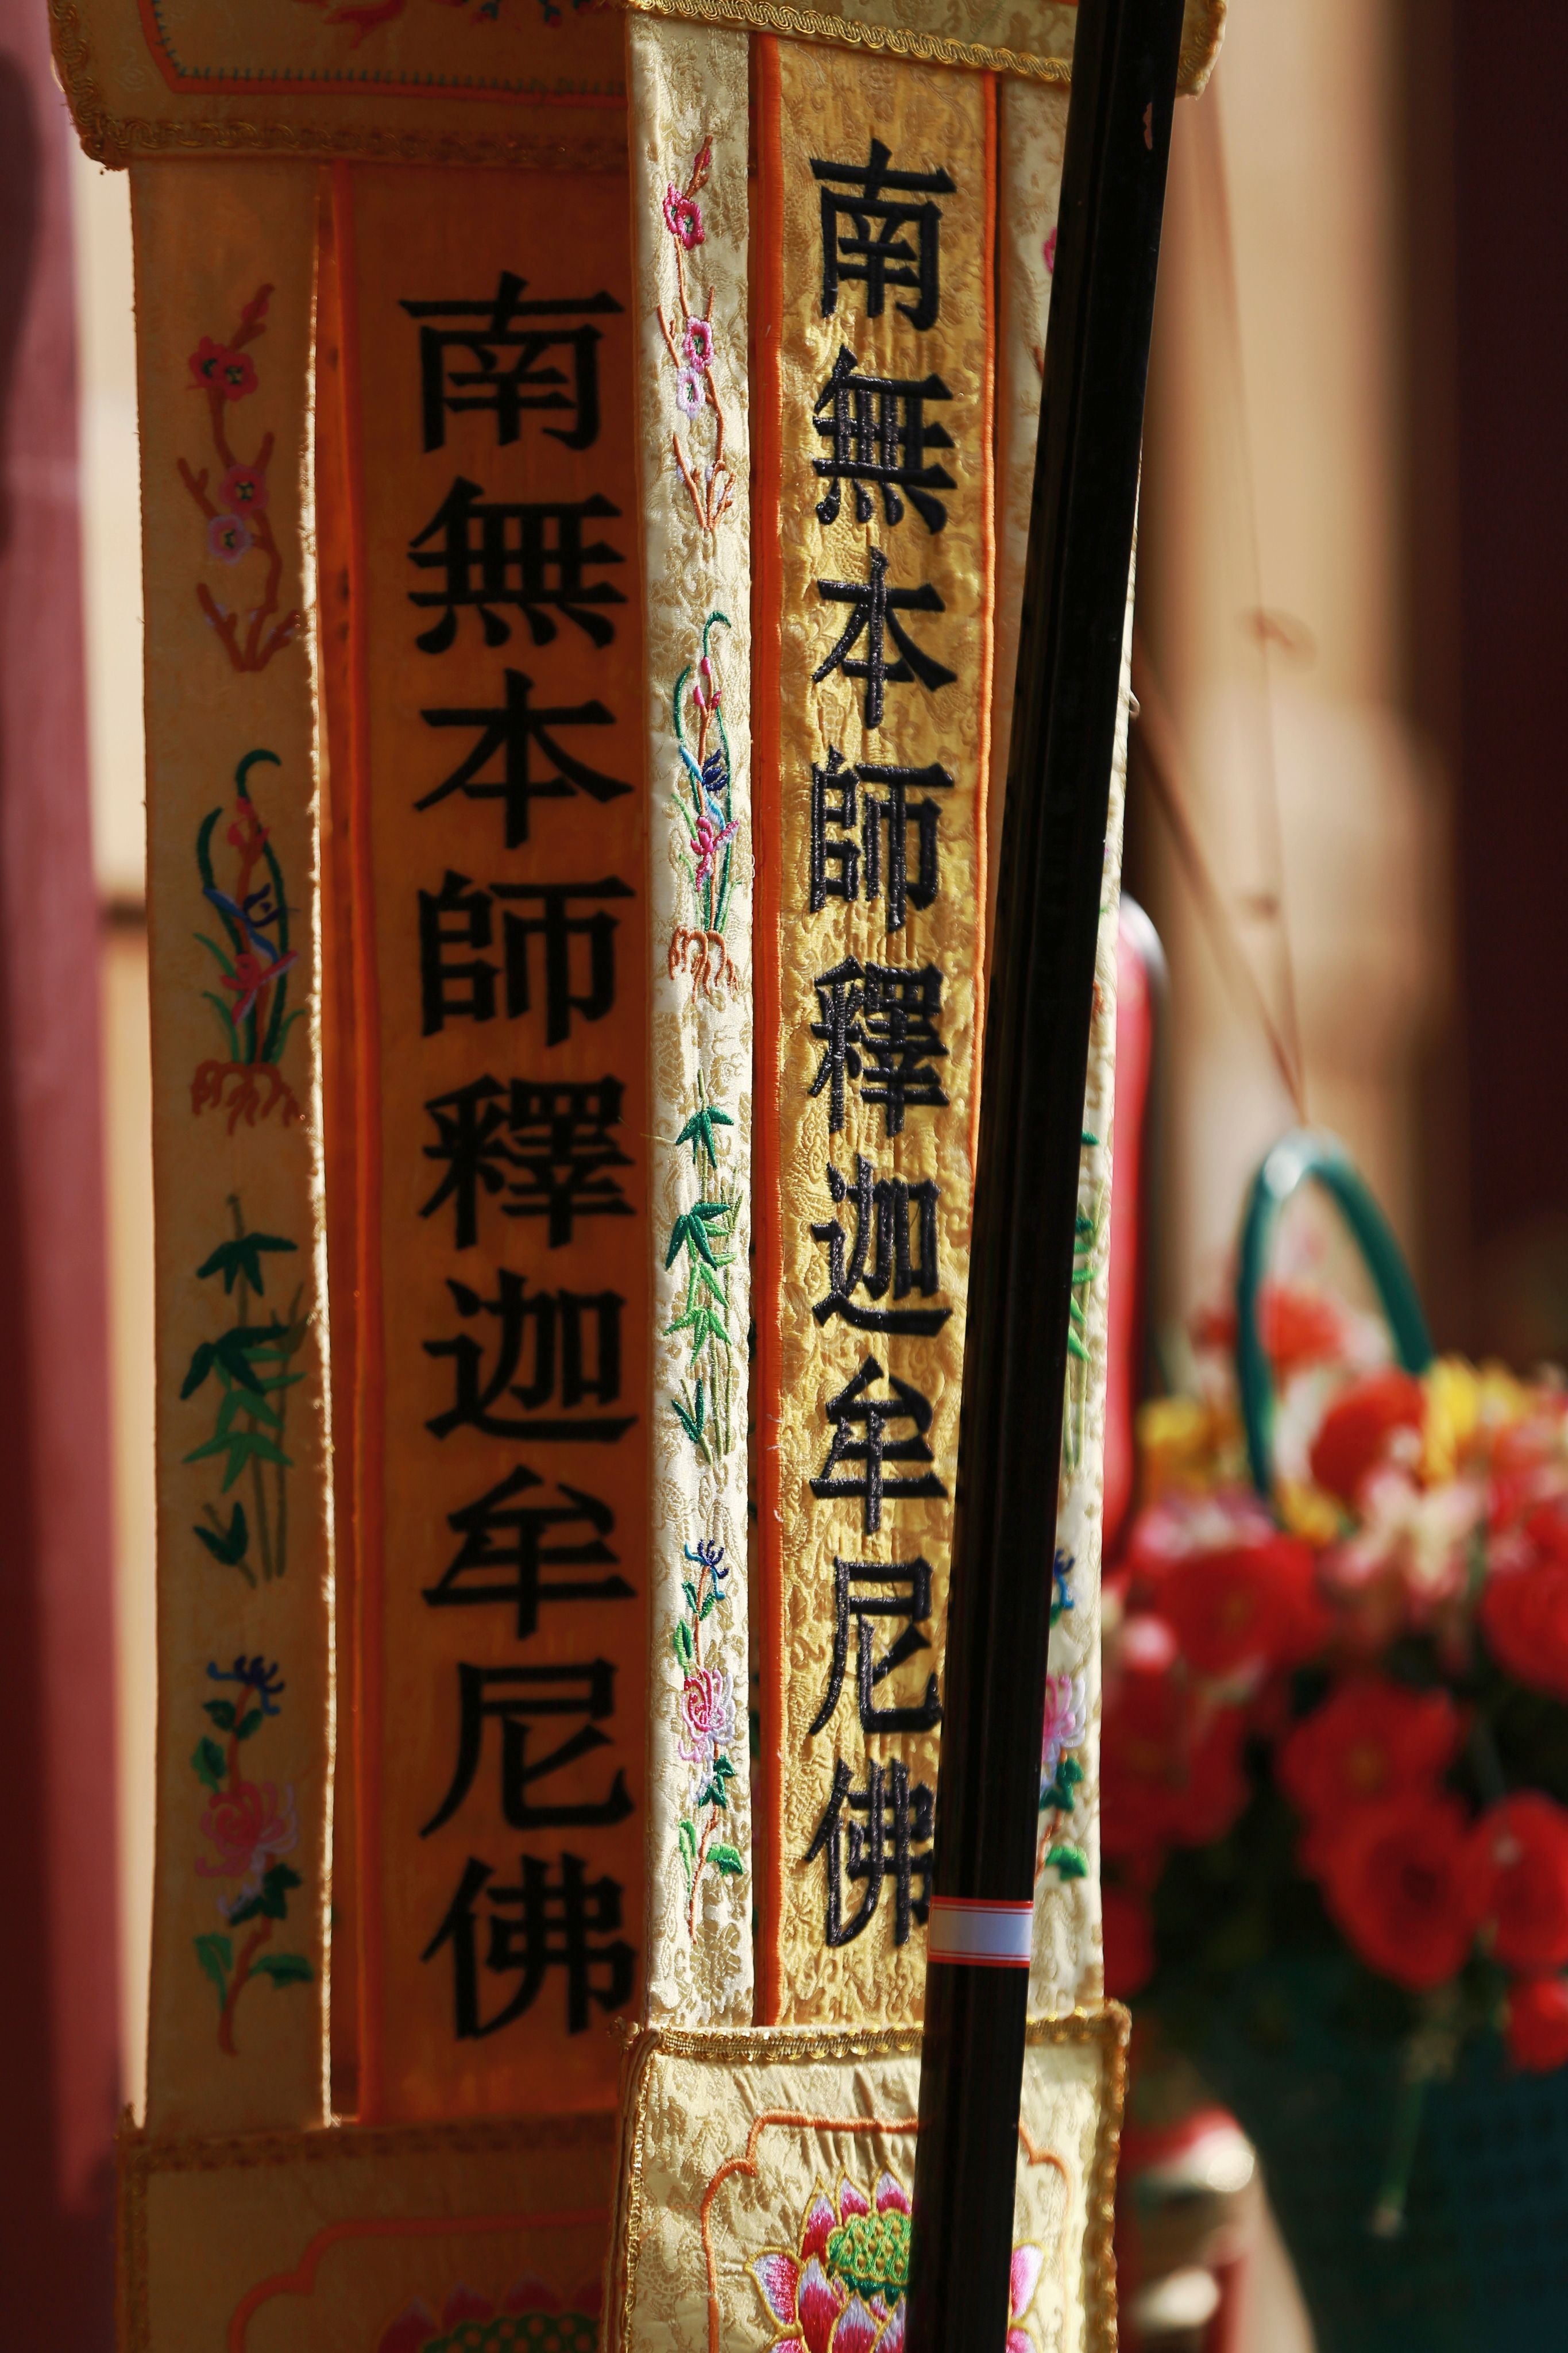 南無本師釋迦牟尼佛
南無本師釋迦牟尼佛